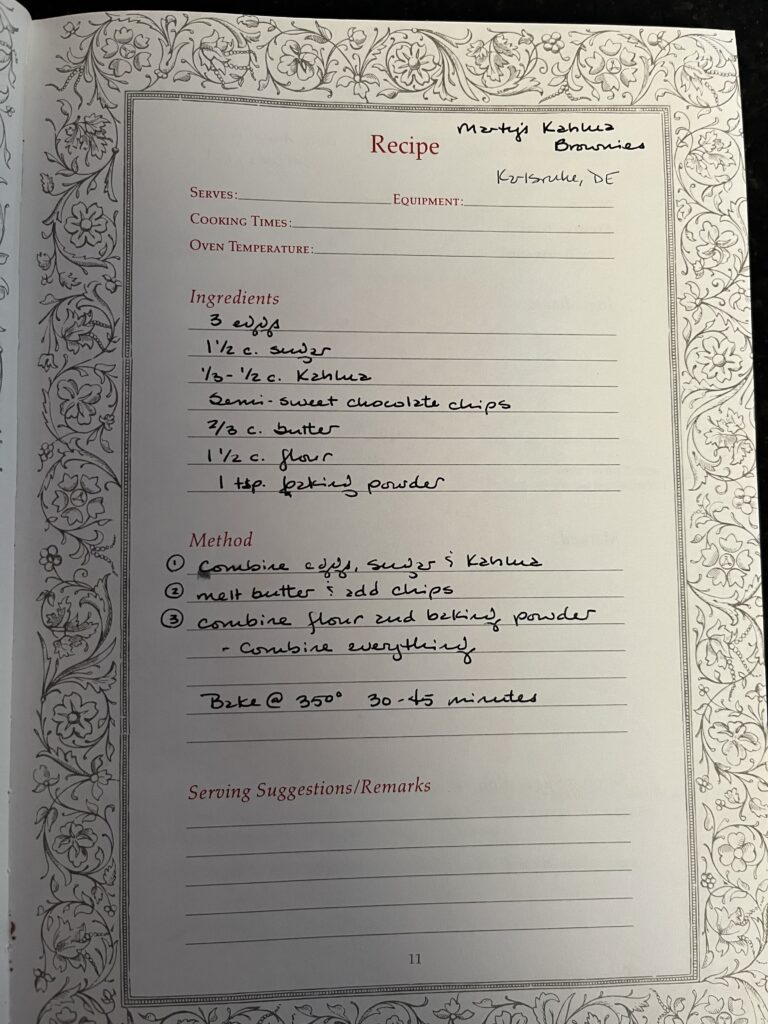 Marty's Kahlua
Recipe Brownies
Karlsruhe, DE
SERVES: EQUIPMENT:
COOKING TIMES:
OVEN TEMPERATURE:
Ingredients
3 eggs
1 1/2 c. sugar
1/3 - 1/2 c. Kahlua
Semi-sweet chocolate chips
2/3 c. butter
1 1/2 c. flour
1 tsp. baking powder
Method
① Combine eggs, sugar & Kahlua
② melt butter & add chips
③ combine flour and baking powder
- Combine everything
Bake @ 350° 30-45 minutes
Serving Suggestions/Remarks
11